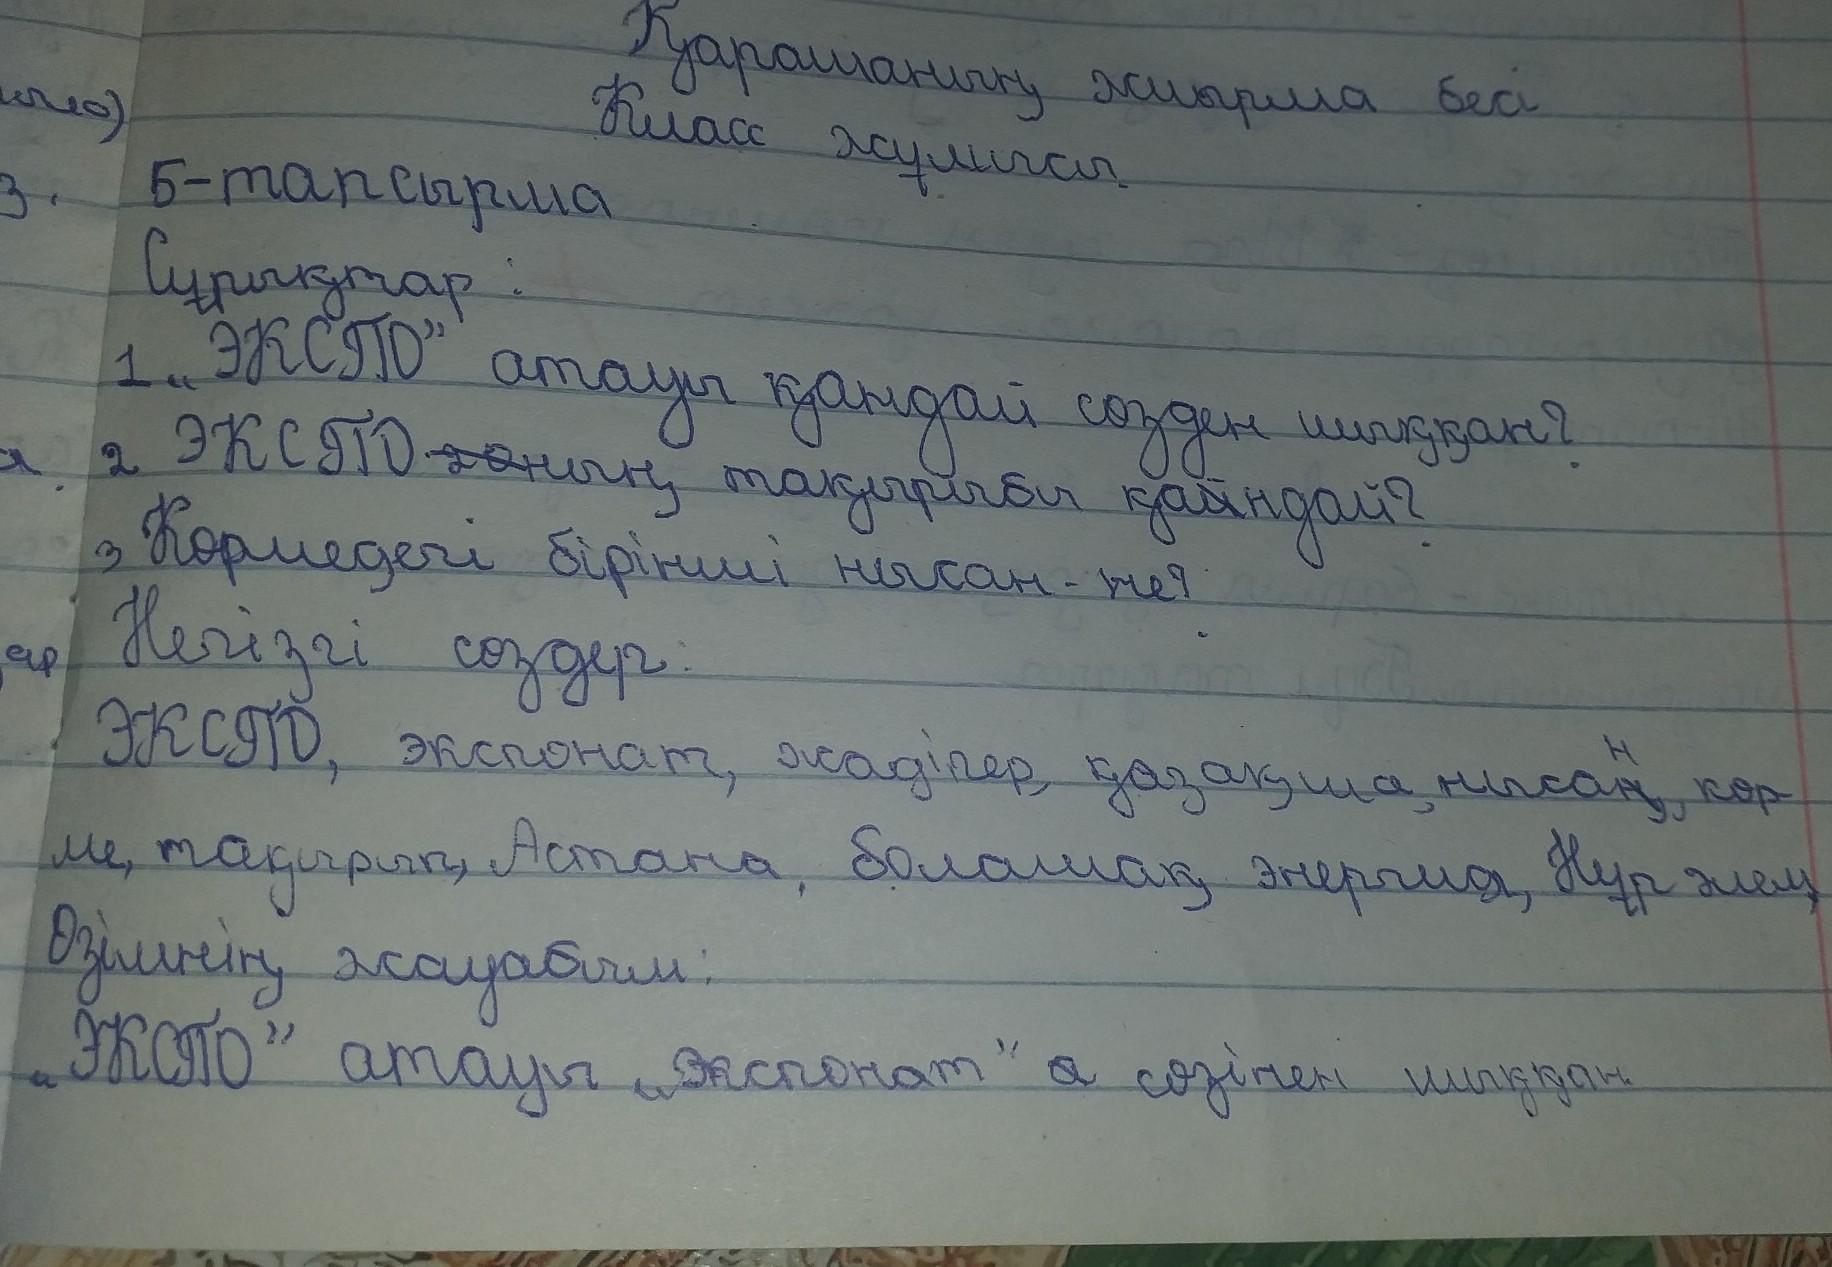 Қарашаның жиырма бесі
Класс жұмысы.
5-тапсырма
Сұрықтар:
1 „ЭКСПО” атауы қандай создең шыққан?
2 ЭКСПО-ның тақырыбы қайндай?
3 Кормедегі бірінші нысан-не?
Негізгі создер:
ЭКСПО, экспонат, жадігер, қазақша, нысаң, кор-
ме, тақырып, Астана, болашақ энергия, Нұр элем,
Озімнің жауабым:
„ЭКСПО” атауы „экспонат” а созінен шыққан